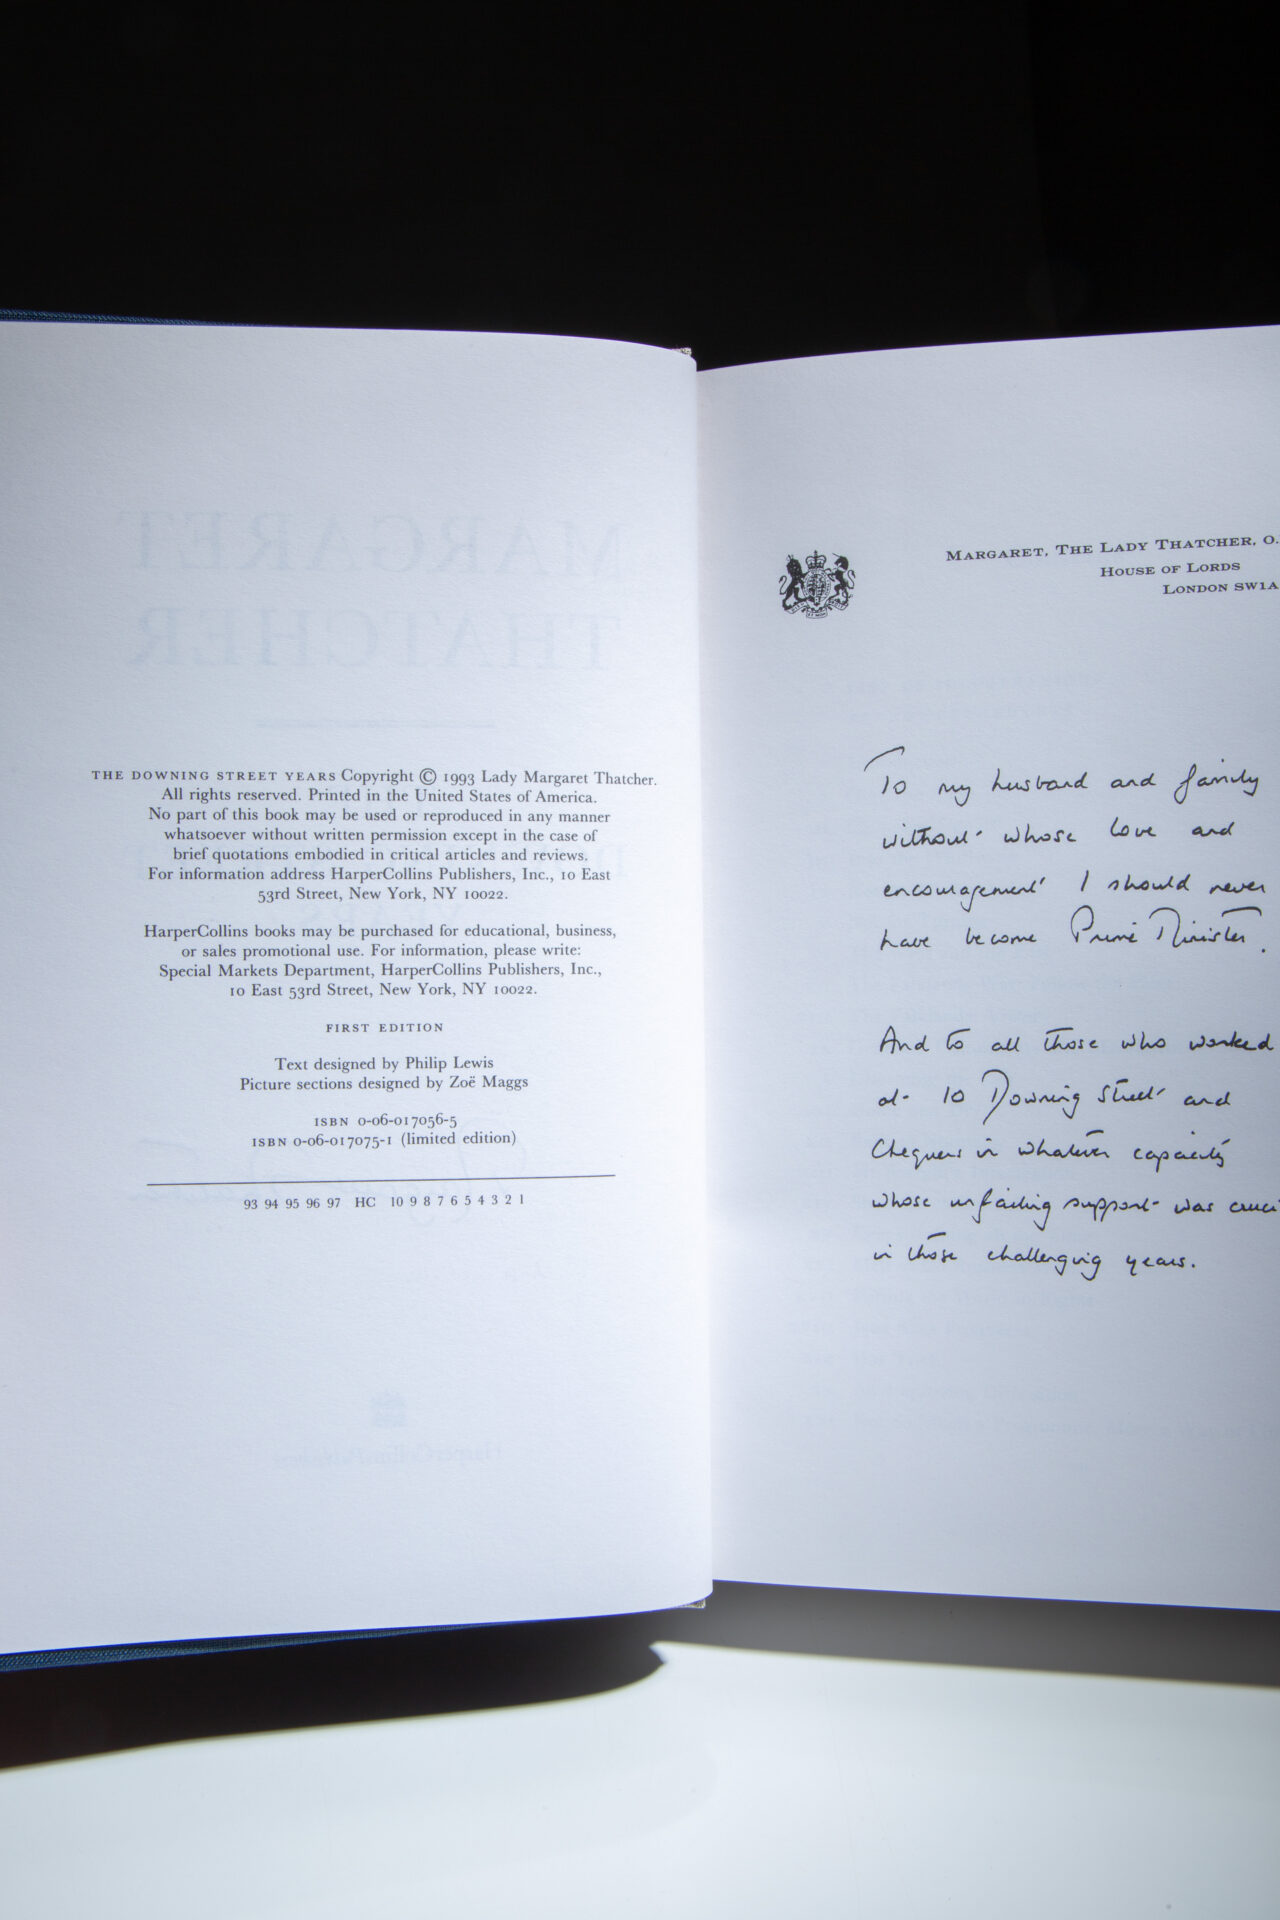 THE DOWNING STREET YEARS Copyright © 1993 Lady Margaret Thatcher.
All rights reserved. Printed in the United States of America.
No part of this book may be used or reproduced in any manner
whatsoever without written permission except in the case of
brief quotations embodied in critical articles and reviews.
For information address HarperCollins Publishers, Inc., 10 East
53rd Street, New York, NY 10022.
HarperCollins books may be purchased for educational, business,
or sales promotional use. For information, please write:
Special Markets Department, HarperCollins Publishers, Inc.,
10 East 53rd Street, New York, NY 10022.
FIRST EDITION
Text designed by Philip Lewis
Picture sections designed by Zoë Maggs
ISBN 0-06-017056-5
ISBN 0-06-017075-1 (limited edition)
93 94 95 96 97 HC 10 9 8 7 6 5 4 3 2 1
MARGARET, THE LADY THATCHER, O.
HOUSE OF LORDS
LONDON SW1A
To my husband and family
without whose love and
encouragement I should never
have become Prime Minister.
And to all those who worked
at 10 Downing Street and
Chequers in whatever capacity
whose unfailing support was cruci
in those challenging years.